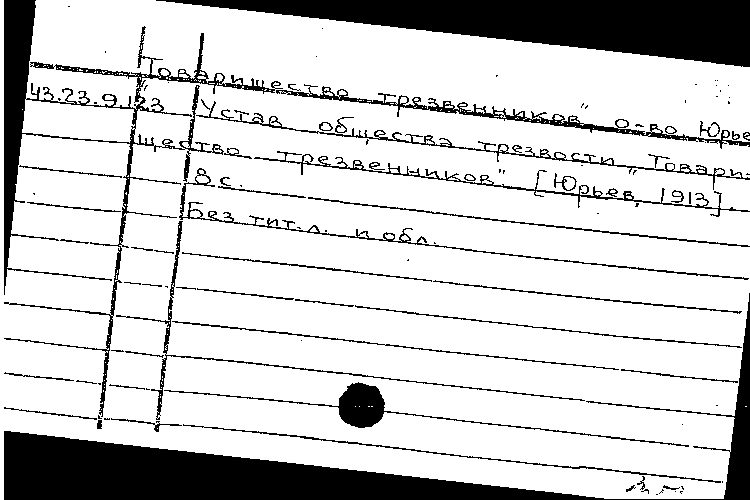 "Товарищество трезвенников", о-во, Юрье
43.23.9.123 Устав общества трезвости „Товари-
щество трезвенников". [Юрьев, 1913].
8 с.
Без тит. л. и обл.